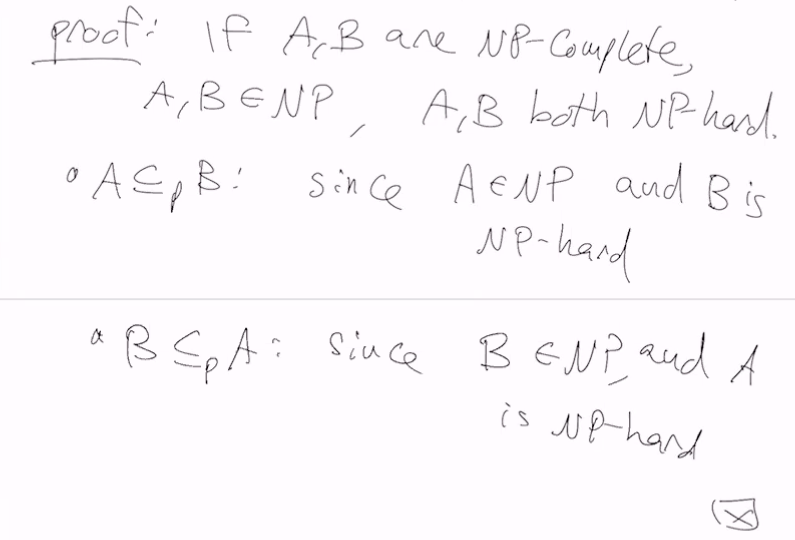 proof: If A,B are NP-Complete,
A,B ∈ NP, A,B both NP-hard.
• A ≤p B: since A ∈ NP and B is
NP-hard
• B ≤p A: since B ∈ NP, and A
is NP-hard